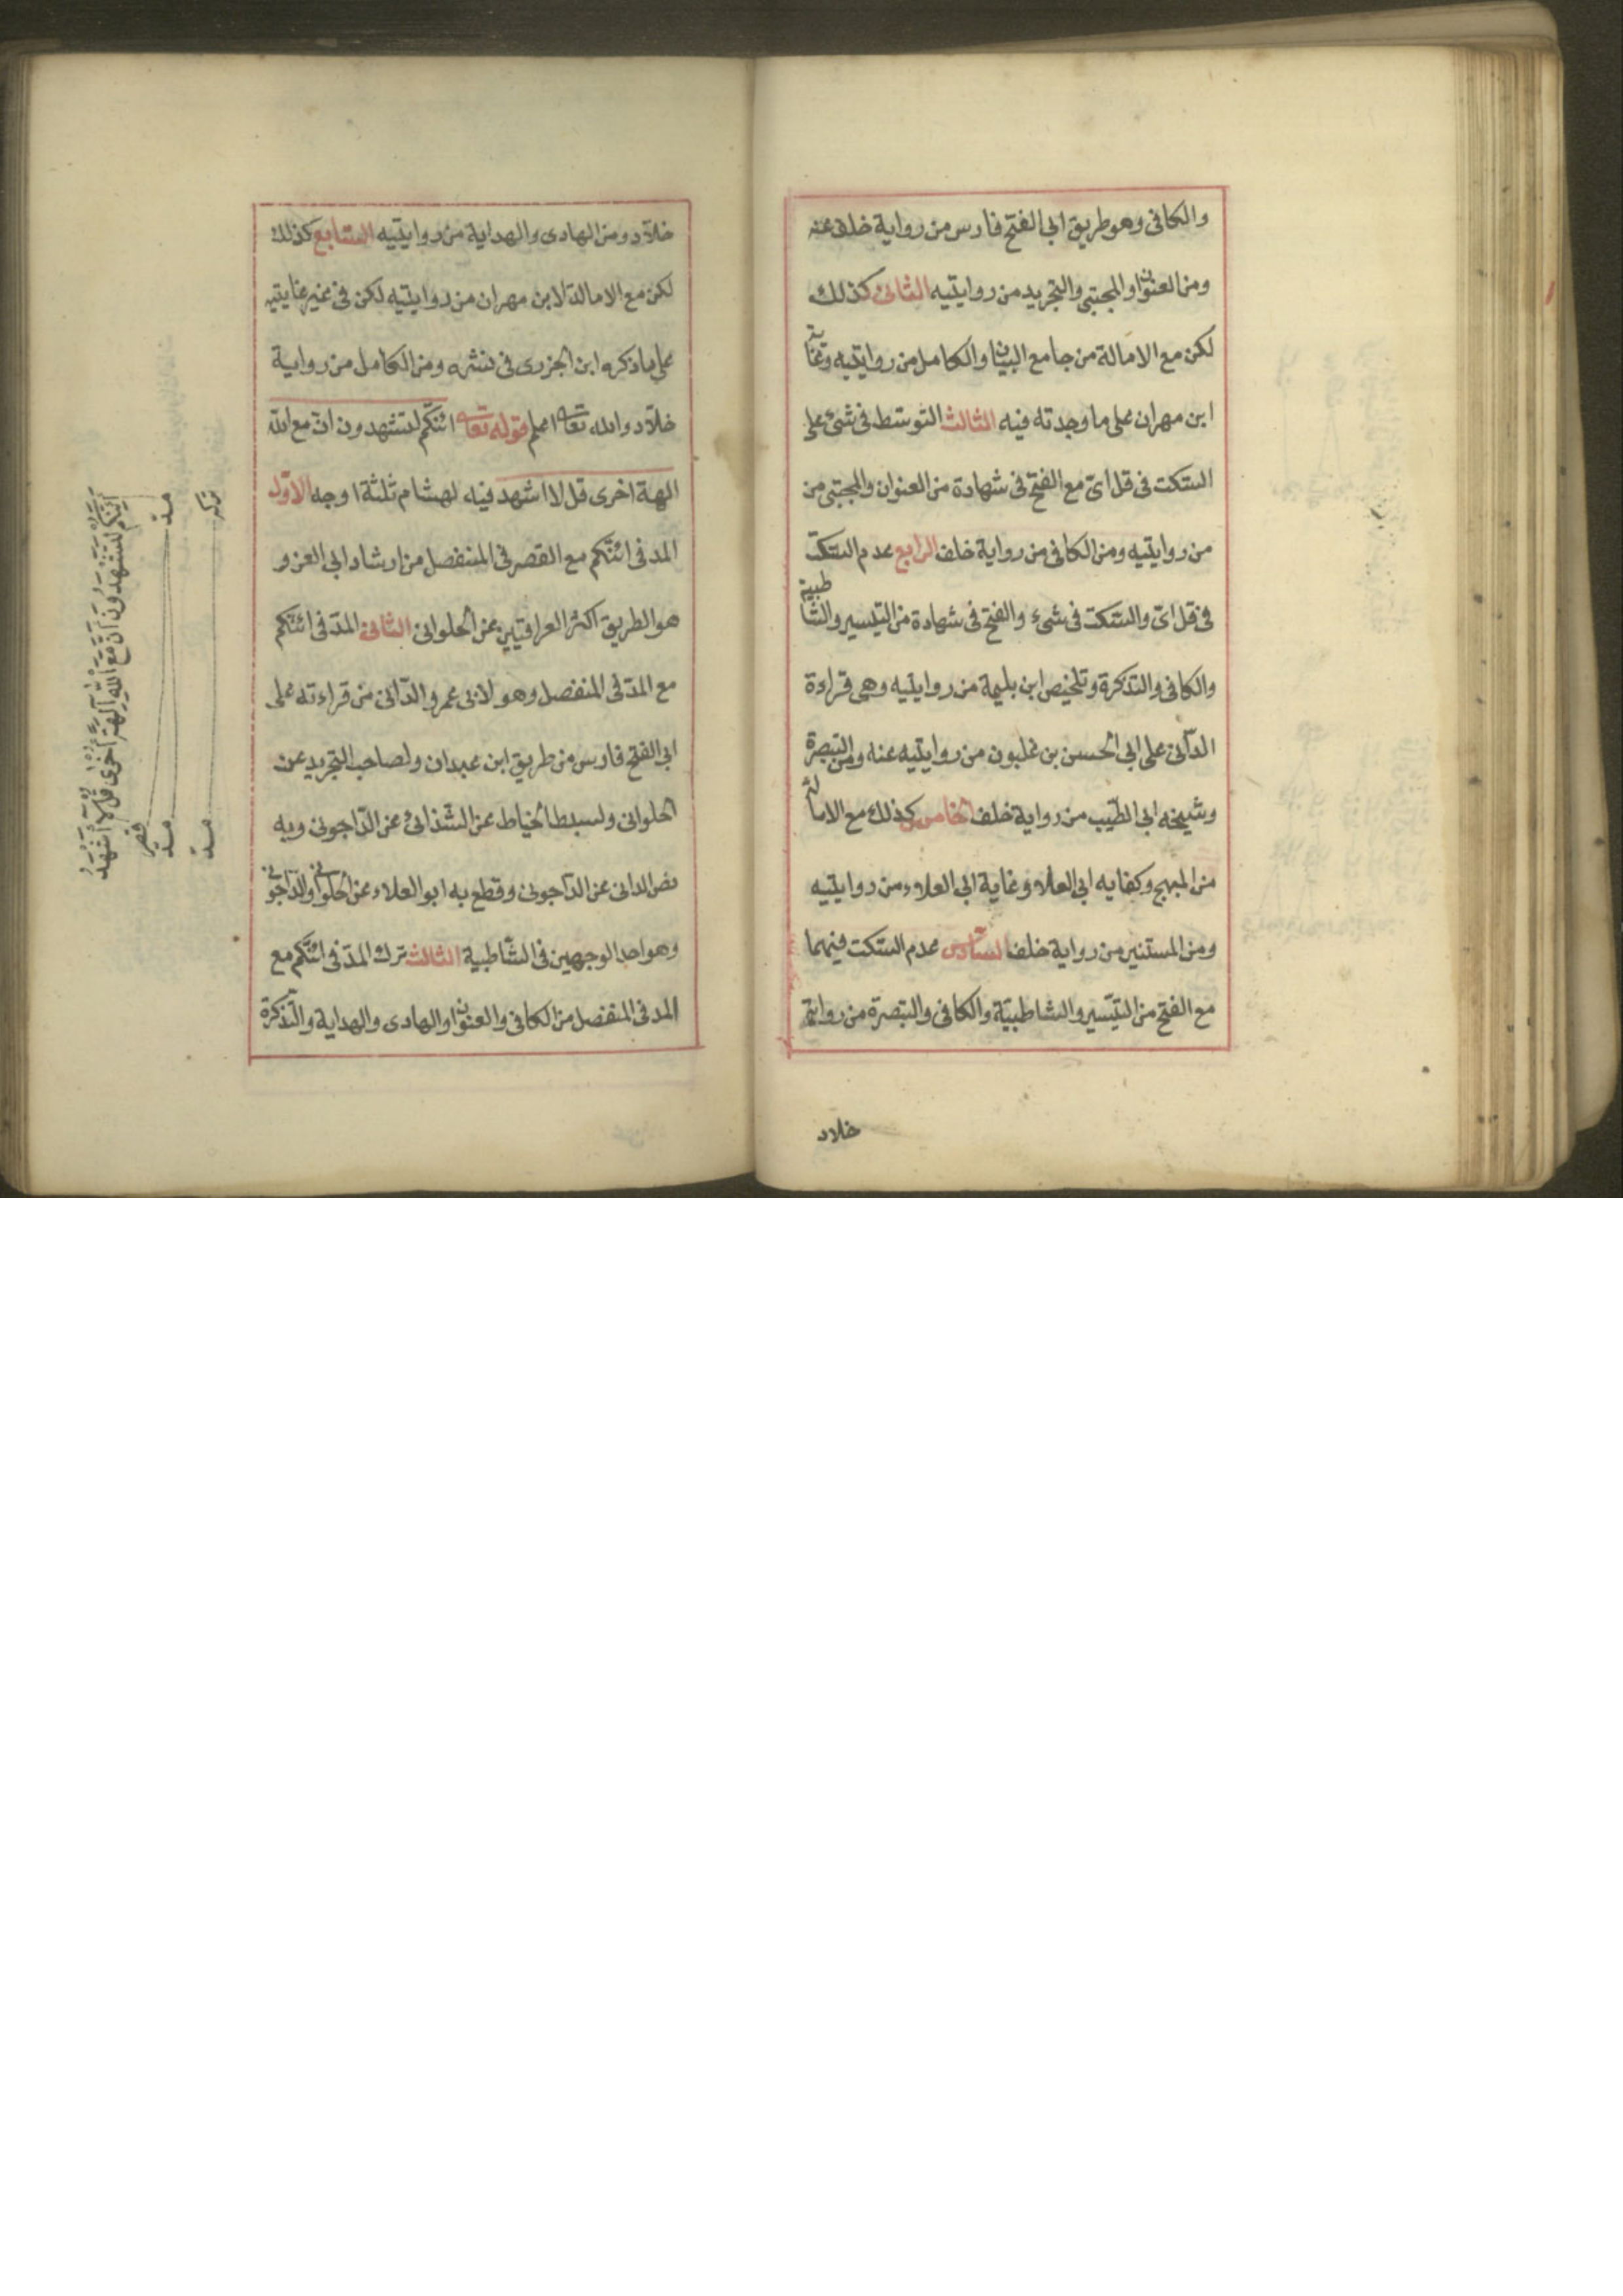 والكافى وهو طريق ابى الفتح فارس من رواية خلف عنه
ومن العنوان والمجتبى والتجريد من روايتيه الثانى كذلك
لكن مع الامالة من جامع البيان والكامل من روايتيه وغاية
ابن مهران على ما وجدته فيه الثالث التوسط فى شئ على
السكت فى قل اىّ مع الفتح فى شهادة من العنوان والمجتبى من
من روايتيه ومن الكافى من رواية خلف الرابع عدم السكت
فى قل اىّ والسكت فى شىء والفتح فى شهادة من التيسير والشاطبية
والكافى والتذكرة وتلخيص ابن بليمة من روايتيه وهى قراءة
الدآنى على ابى الحسن بن غلبون من روايتيه عنه ومن التبصرة
وشيخه ابى الطّيب من رواية خلف الخامس كذلك مع الامالة
من المبهج وكفايه ابى العلاء وغاية ابى العلاء من روايتيه
ومن المستنير من رواية خلف السّادس عدم السكت فيهما
مع الفتح من التيّسير والشاطبيّة والكافى والتبصرة من رواية
خلاد
خلاّد ومن الهادى والهداية من روايتيه السّابع كذلك
لكن مع الامالة لابن مهران من روايتيه لكن فى غير غايتيه
على ما ذكره ابن الجزرى فى نشره ومن الكامل من رواية
خلاّد والله تعا اعلم قوله تعا ائنّكم لتشهدون انّ مع الله
الهة اخرى قل لا اشهد فيه لهشام ثلثة اوجه الاوّل
المد فى ائنّكم مع القصر فى المنفصل من ارشاد ابى العز و
هو الطريق اكثر العراقيّين عن الحلوانى الثانى المدّ فى ائنّكم
مع المدّ فى المنفصل وهو لابى عمرو الدّانى من قراءته على
ابى الفتح فارس من طريق ابن عبدان ولصاحب التجريد عن
الحلوانى ولسبط الخياط عن الشّذائى عن الدّاجونى وبه
نصّ الدانى عن الدآجونى وقطع به ابو العلاء عن الحلوانى والدّاجونى
وهو احد الوجهين فى الشّاطبية الثالث ترك المدّ فى ائنّكم مع
المد فى المنفصل من الكافى والعنوان والهادى والهداية والتّذكرة
أئِنَّكُمْ لَتَشْهَدُونَ أَنَّ مَعَ اللّٰهِ آلِهَةً أُخْرٰى قُلْ لَا أَشْهَدُ
مدّ قصر
مدّ
ترك مدّ